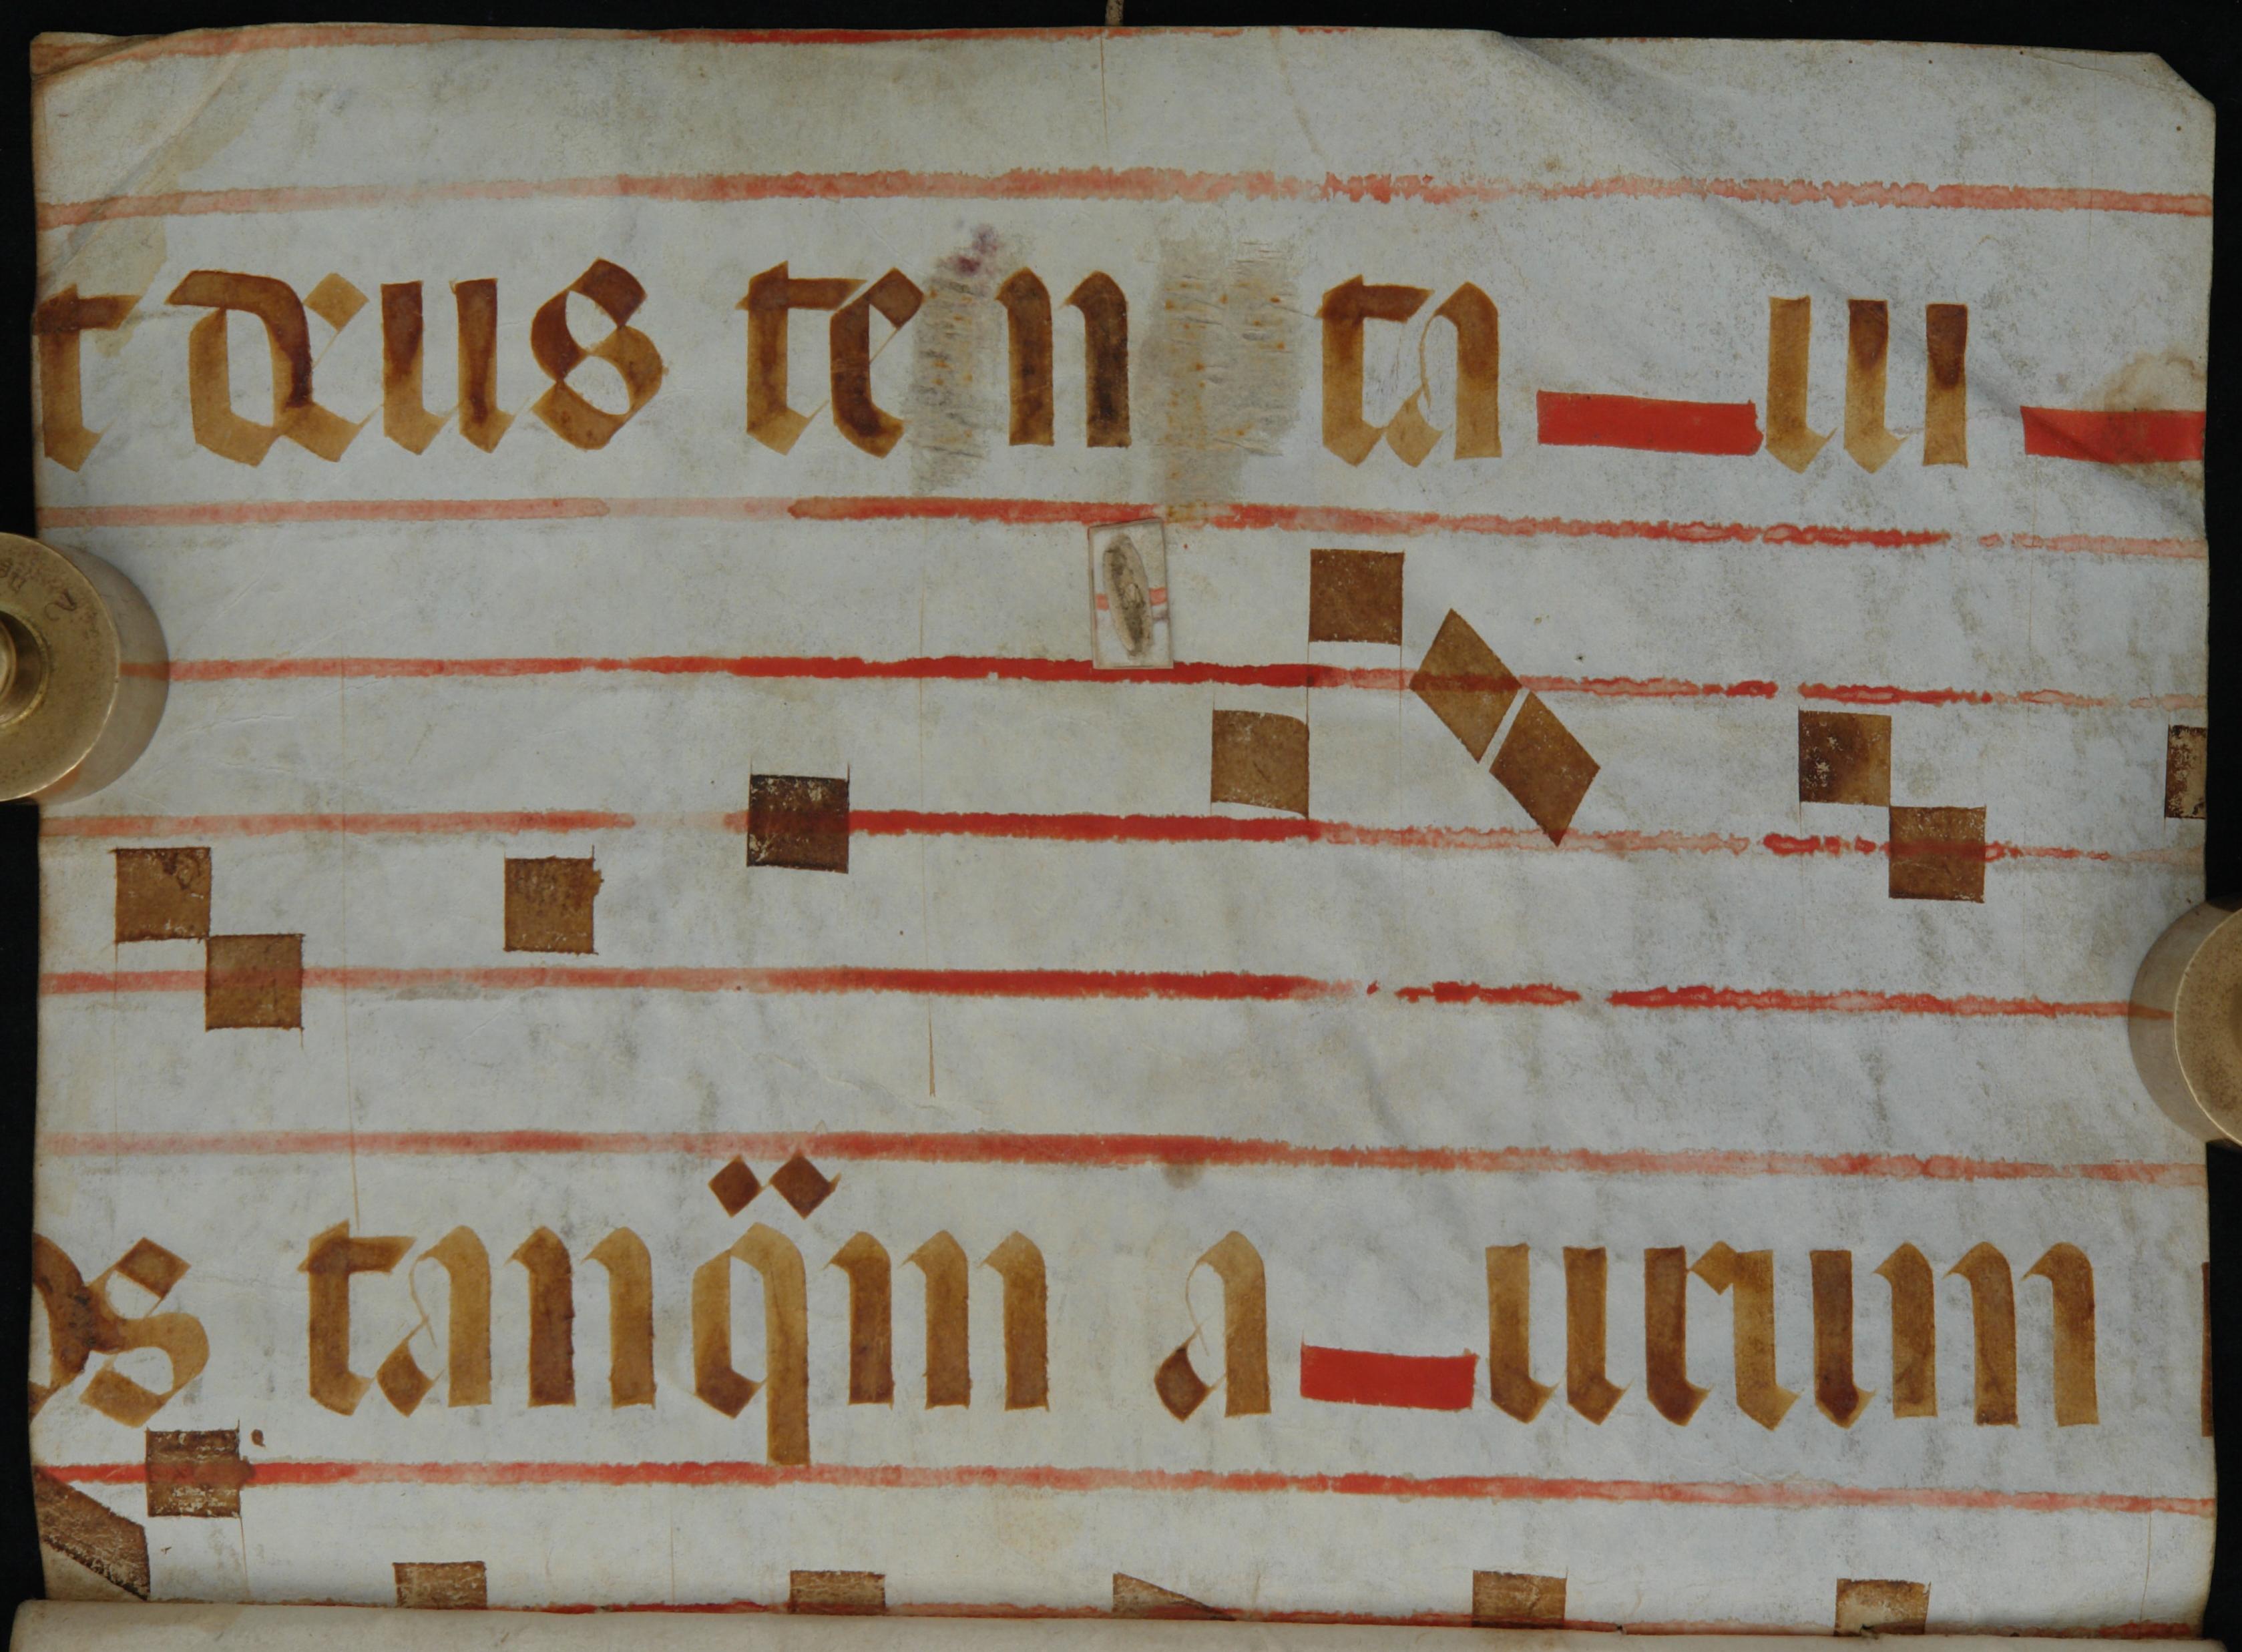 t deus ten ta_ui_
os tanq̈m a_urum